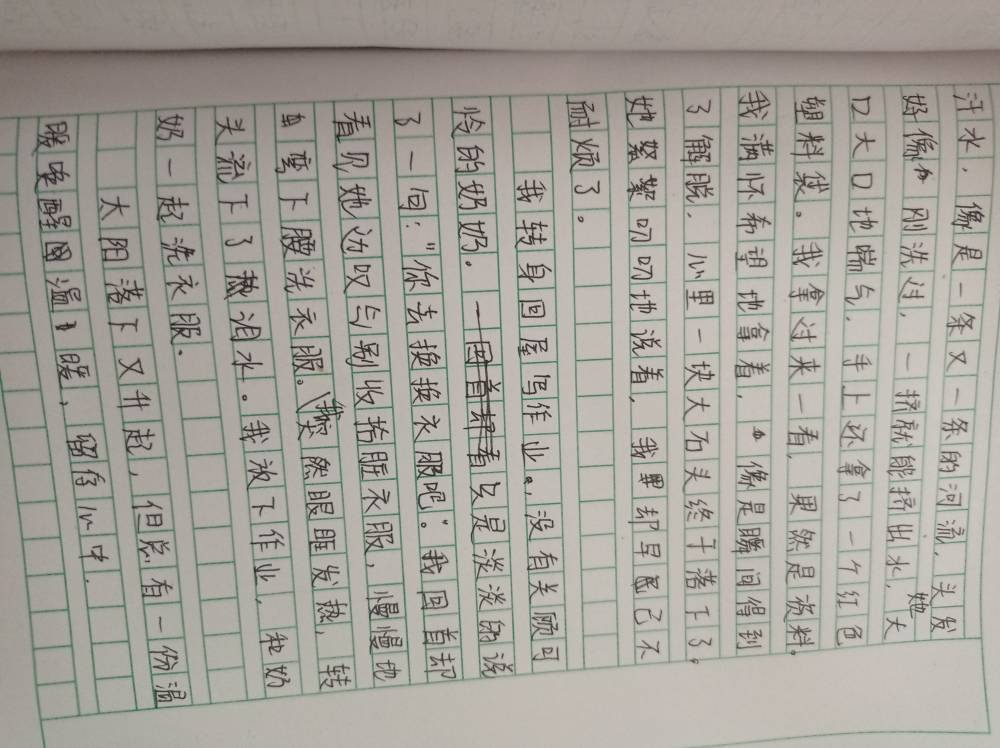 汗水，像是一条又一条的河流，头发
好像刚洗过，一挤就能挤出水，她大
口大口地喘气，手上还拿了一个红色
塑料袋。我拿过来一看，果然是资料。
我满怀希望地拿着，像是瞬间得到
了解脱，心里一块大石头终于落下了，
她絮絮叨叨地说着，我却早已不
耐烦了。
我转身回屋写作业，没有关顾可
怜的奶奶。只是淡淡的说
了一句：“你去换换衣服吧”。我回首却
看见她边叹气别收拾脏衣服，慢慢地
弯下腰洗衣服。突然眼眶发热，转
头流下了热泪水。我放下作业，和奶
奶一起洗衣服.
太阳落下又升起，但总有一份温
暖唤醒温暖，留存心中.